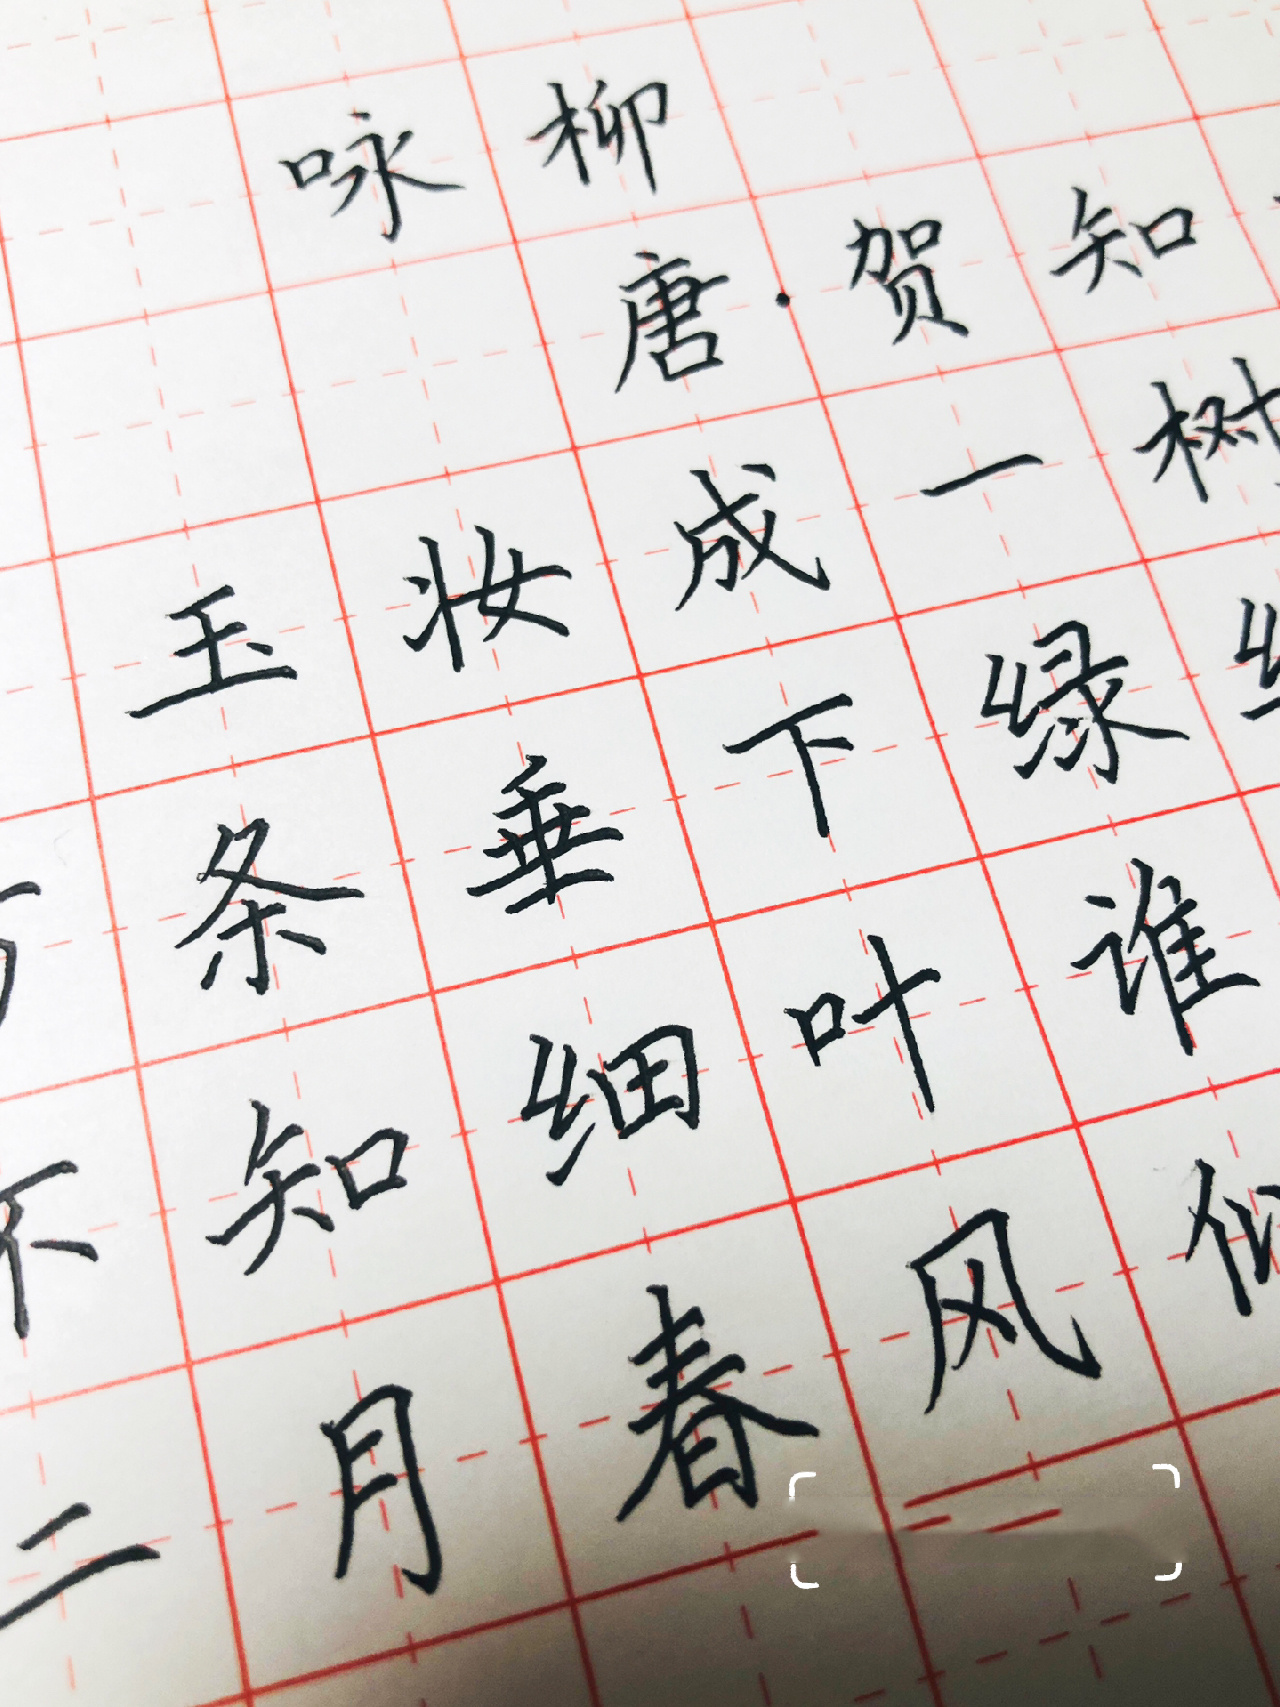 咏柳
唐·贺知
玉妆成一树
条垂下绿
不知细叶谁
二月春风似